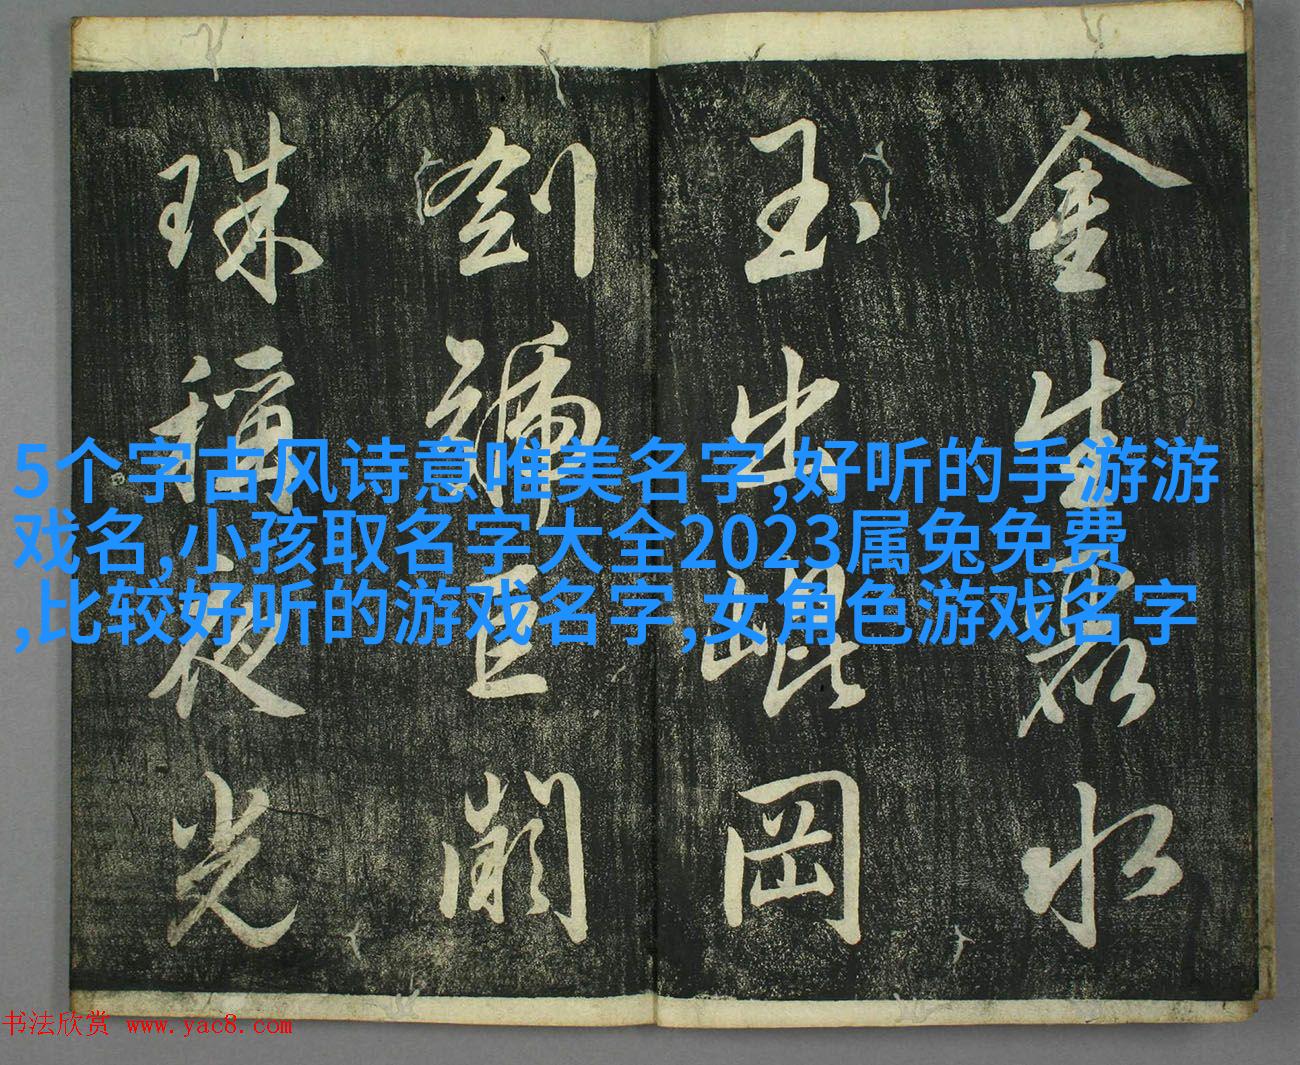 金生麗水
玉出崐岡
劍號巨闕
珠稱夜光
5个字古风诗意唯美名字,好听的手游游
戏名,小孩取名字大全2023属兔免费
,比较好听的游戏名字,女角色游戏名字
书法欣赏 www.yac8.com